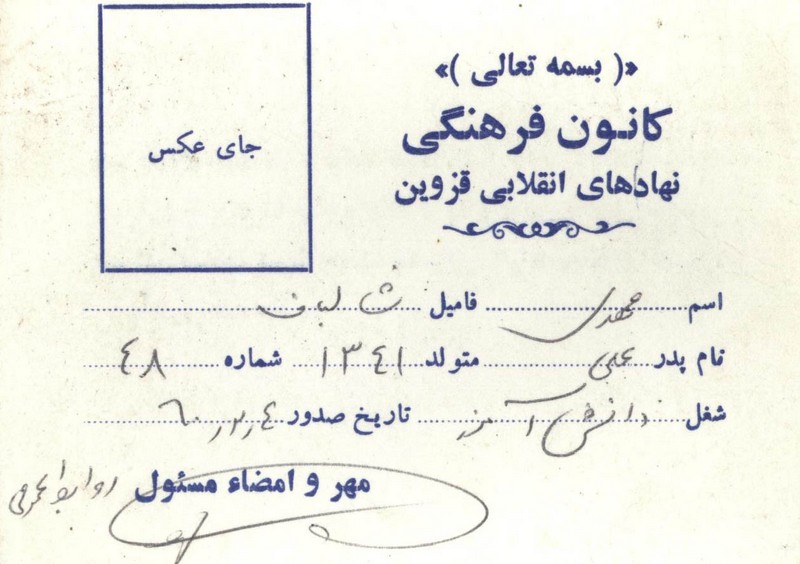 «( بسمه تعالی )»
کانون فرهنگی
نهادهای انقلابی قزوین
جای عکس
اسم مهدی فامیل شالباف
نام پدر علی متولد ۱۳۴۱ شماره ۴۸
شغل دانش آموز تاریخ صدور ۶۰٫۲٫۴
مهر و امضاء مسئول روابط عمومی